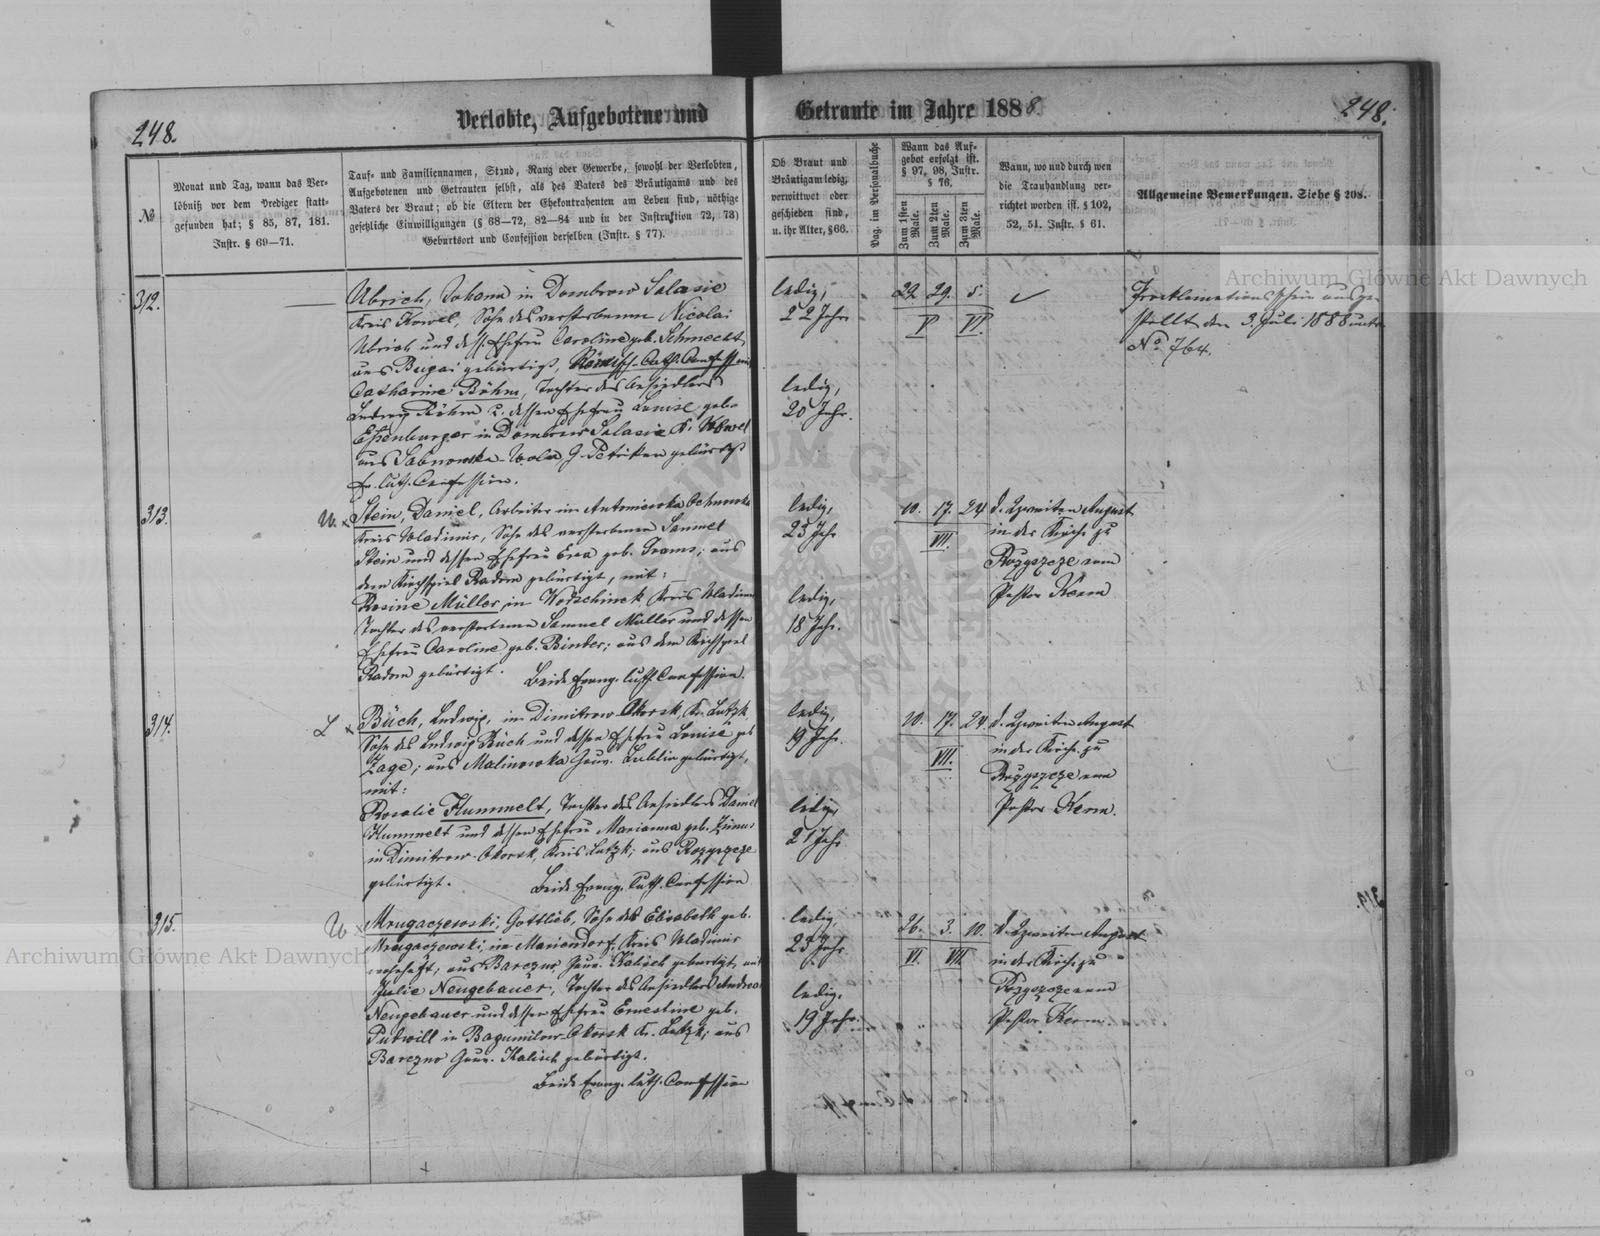 248.
Verlobte, Aufgebotene und
Getraute im Jahre 1888.
248.
№
Monat und Tag, wann das Ver-
löbniß vor dem Prediger statt-
gefunden hat; § 85, 87, 181.
Instr. § 69—71.
Tauf- und Familiennamen, Stand, Rang oder Gewerbe, sowohl der Verlobten,
Aufgebotenen und Getrauten selbst, als des Vaters des Bräutigams und des
Vaters der Braut; ob die Eltern der Ehekontrahenten am Leben sind, nöthige
gesetzliche Einwilligungen (§ 68—72, 82—84 und in der Instruktion 72, 73)
Geburtsort und Confession derselben (Instr. § 77).
Ob Braut und
Bräutigam ledig,
verwittwet oder
geschieden sind,
u. ihr Alter, § 66.
Pag. im Personalbuche
Wann das Auf-
gebot erfolgt ist.
§ 97, 98, Instr.
§ 76.
Zum 1sten Male.
Zum 2ten Male.
Zum 3ten Male.
Wann, wo und durch wen
die Trauhandlung ver-
richtet worden ist. § 102,
52, 51. Instr. § 61.
Allgemeine Bemerkungen. Siehe § 208.
312.
Ubrich, Johann in Dombrow Salasie
Kreis Kowel, Sohn des verstorbenen Nicolai
Ubrich und dess. Ehefrau Caroline geb. Schmecht
aus Bugai gebürtigt, Römisch-Cath. Confession mit
Catharine Böhm, Tochter des Ansiedlers
Ludwig Böhm u. dessen Ehefrau Louise geb.
in Dombrow Salasie K. Kowel
aus Wola, G. Petrikau gebürtigt
Ev. Luth. Confession.
ledig,
22 Jahr
ledig,
20 Jahr.
22. 29. 5.
V VI.
Proklamationsschein ausge-
stellt den 3. Juli 1888 unter
No 764.
313.
W. x Stein, Daniel, Arbeiter in Antoniewka
Kreis Wladimir, Sohn des verstorbenen Samuel
Stein und dessen Ehefrau Eva geb. Grams; aus
dem Kirchspiel Radom gebürtigt, mit:
Rosine Müller, in Kreis Wladimir
Tochter des verstorbenen Samuel Müller und dessen
Ehefrau Caroline geb. Binder; aus dem Kirchspiel
Radom gebürtigt. Beide Evang. Luth. Confession.
ledig,
23 Jahr
ledig,
18 Jahr.
10. 17. 24
VII.
d. Zweiten August
in der Kirche zu
Rozyszcze vom
Pastor Kerm
314.
L x Büch, Ludwig, in Dimitrow-Okorsk, Kr. Lutzk,
Sohn des Ludwig Büch und dessen Ehefrau Louise geb.
Zage; aus Malinowka Gouv. Lublin gebürtigt,
mit:
Rosalie Hummelt, Tochter des Ansiedlers Daniel
Hummelt und dessen Ehefrau Marianna geb.
in Dimitrow-Okorsk, Kreis Lutzk; aus Rozyszcze
gebürtigt. Beide Evang. Luth. Confession
ledig,
19 Jahr.
ledig,
21 Jahr
10. 17. 24.
VII.
d. Zweiten August
in der Kirche zu
Rozyszcze vom
Pastor Kerm.
315.
W x Mrugaczewski, Gottlieb, Sohn der Elisabeth geb.
Mrugaczewski, in Mariendorf, Kreis Wladimir
wohnhaft; aus Barczno Gouv. Kalisch gebürtigt, mit
Julie Neugebauer, Tochter des Ansiedlers Andreas
Neugebauer und dessen Ehefrau Ernestine geb.
in Bogumilow-Okorsk Kr. Lutzk; aus
Barczno Gouv. Kalisch gebürtigt.
Beide Evang. Luth. Confession
ledig,
23 Jahr
ledig.
19 Jahr.
26. 3. 10.
VI. VII
d. Zweiten August
in der Kirche zu
Rozyszcze vom
Pastor Kerm.
Archiwum Główne Akt Dawnych
Archiwum Główne Akt Dawnych